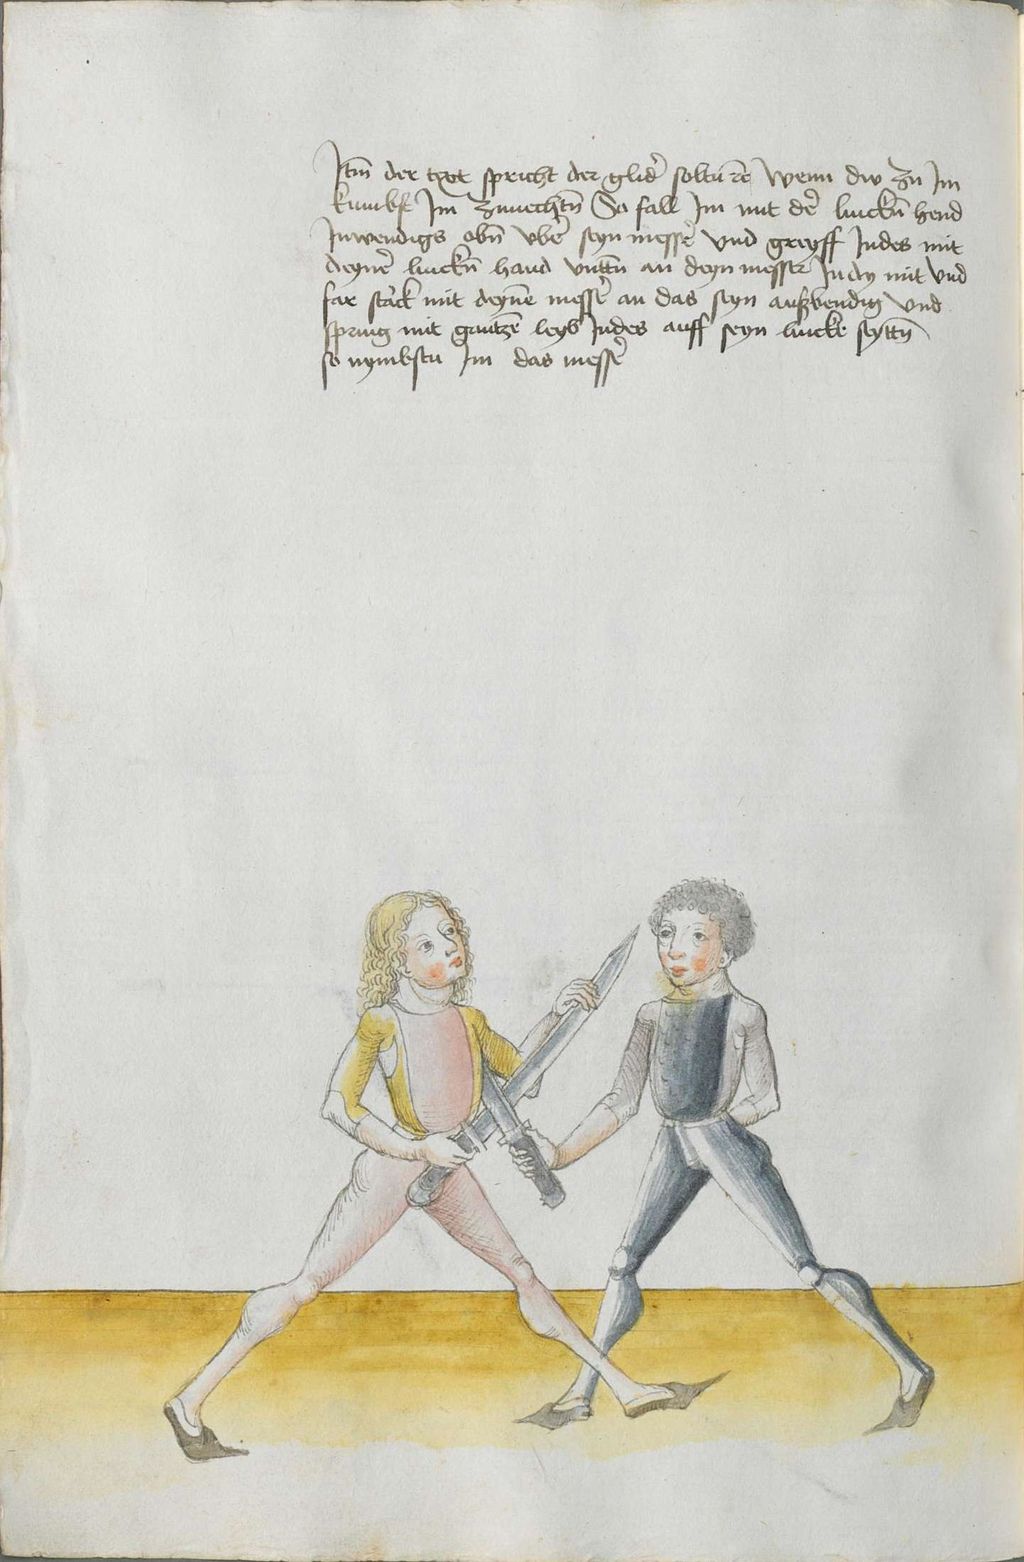 Itm̄ der text spricht der glid̕ soltu rē wenn dw zu Im
kumbst Im zuuechtn̄ So fall Im mit de̕ linckn̄ hend
Inwendigs obn̄ vbe̕ seyn messe̕ vnd greyff Indes mit
deyne̕ linckn̄ hand vnttn̄ an deyn messer In dy mit vnd
far starck mit deynē messe̕ an das seyn auswendig vnd
spring mit gantzē leyb Indes auff seyn lincke seyttn̄
so nymbstu Im das messe̕